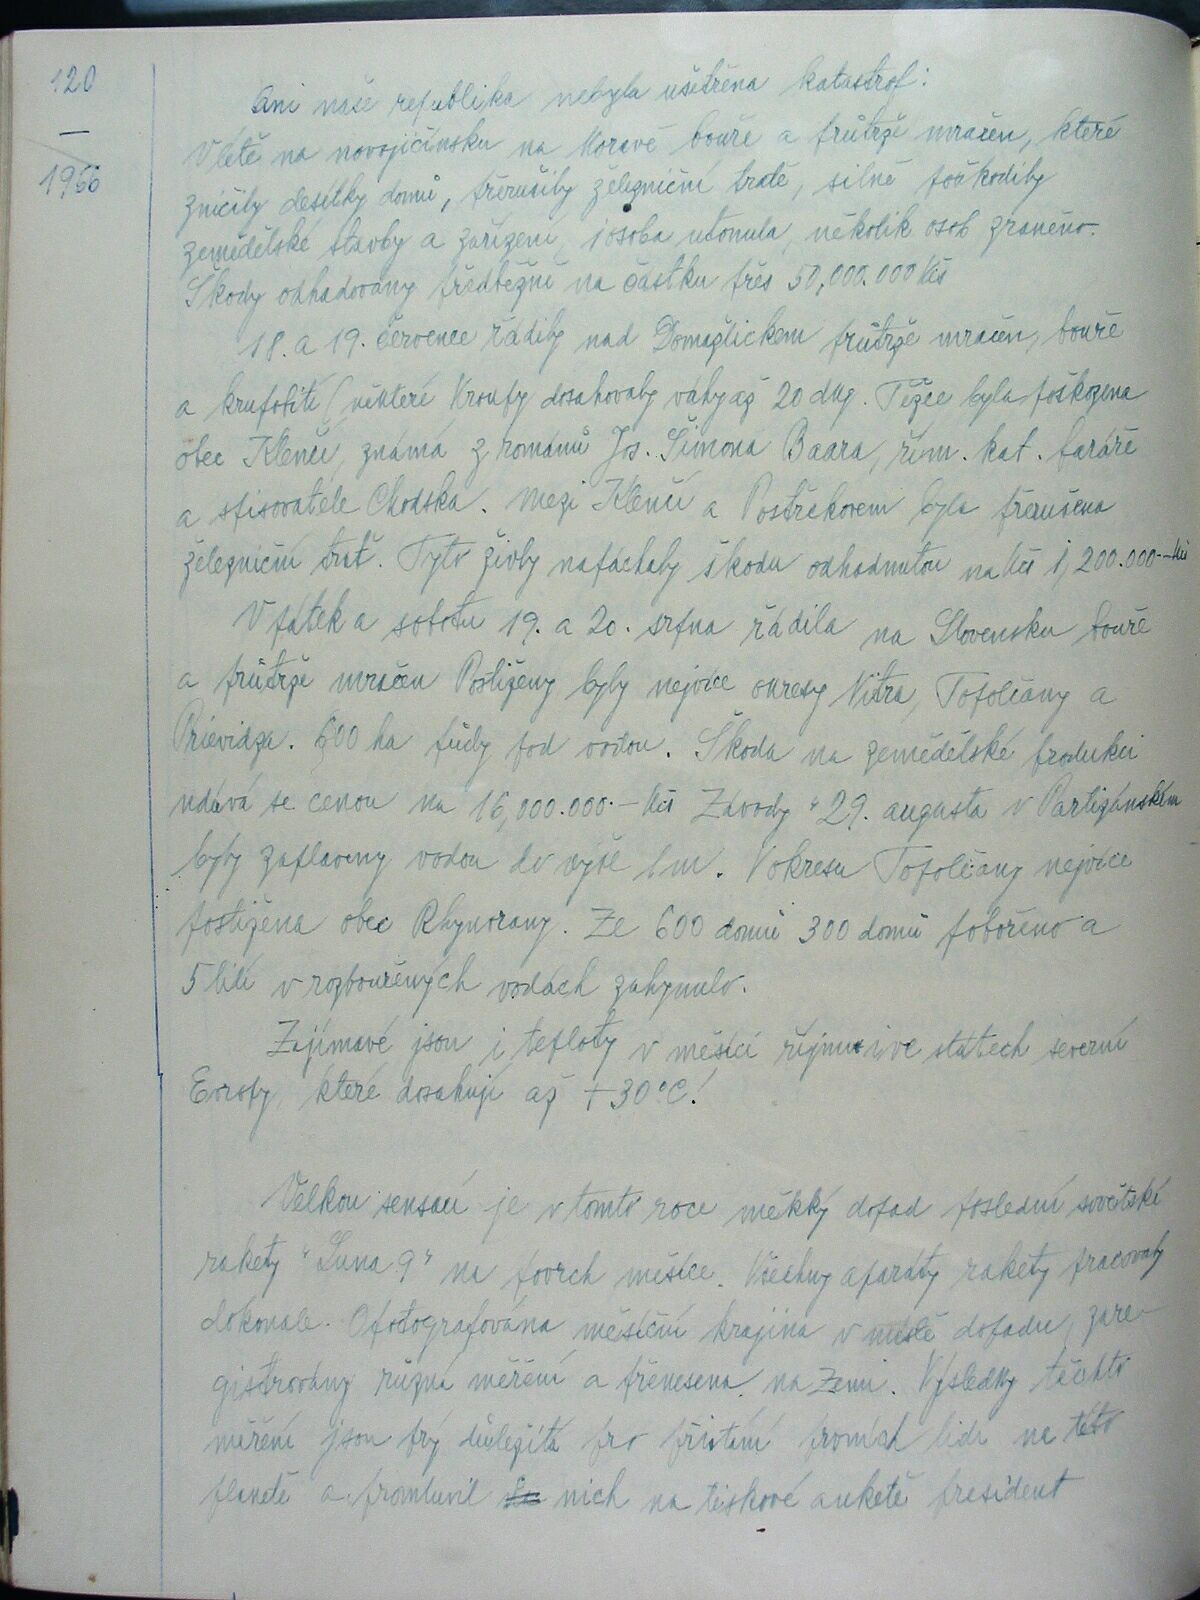 120
—
1966
Ani naše republika nebyla ušetřena katastrof:
V létě na novojičínsku na Moravě bouře a průtrže mračen, které
zničily desítky domů, přerušily železniční tratě, silně poškodily
zemědělské stavby a zařízení, 1 osoba utonula, několik osob zraněno.
Škody odhadovány předběžně na částku přes 50,000.000 Kčs
18. a 19. července řádily nad Domažlickem průtrže mračen, bouře
a krupobití (některé kroupy dosahovaly váhy až 20 dkg. Těžce byla poškozena
obec Klenčí, známá z románů Jos. Šimona Baara, řím. kat. faráře
a spisovatele Chodska. Mezi Klenčí a Postřekovem byla přerušena
železniční trať. Tyto živly napáchaly škodu odhadnutou na Kčs 1,200.000.--Kčs
V pátek a sobotu 19. a 20. srpna řádila na Slovensku bouře
a průtrže mračen Postiženy byly nejvíce okresy Nitra, Topolčany a
Prievidza. 600 ha půdy pod vodou. Škoda na zemědělské produkci
udává se cenou na 16,000.000.- Kčs Závody "29. augusta v Partizánském
byly zaplaveny vodou do výše 1 m. V okresu Topolčany nejvíce
postižena obec Rhynorany. Ze 600 domů 300 domů pobořeno a
5 lidí v rozbouřených vodách zahynulo.
Zajímavé jsou i teploty v měsíci říjnu i ve státech severní
Evropy, které dosahují až +30°C!
Velkou sensací je v tomto roce měkký dopad poslední sovětské
rakety "Luna 9" na povrch měsíce. Všechny aparáty rakety pracovaly
dokonale. Ofotografována měsíční krajina v místě dopadu, zare-
gistrovány různá měření a přenesena na Zemi. Výsledky těchto
měření jsou prý důležitá pro přistání prvních lidí na této
planetě a promluvil o nich na tiskové anketě president